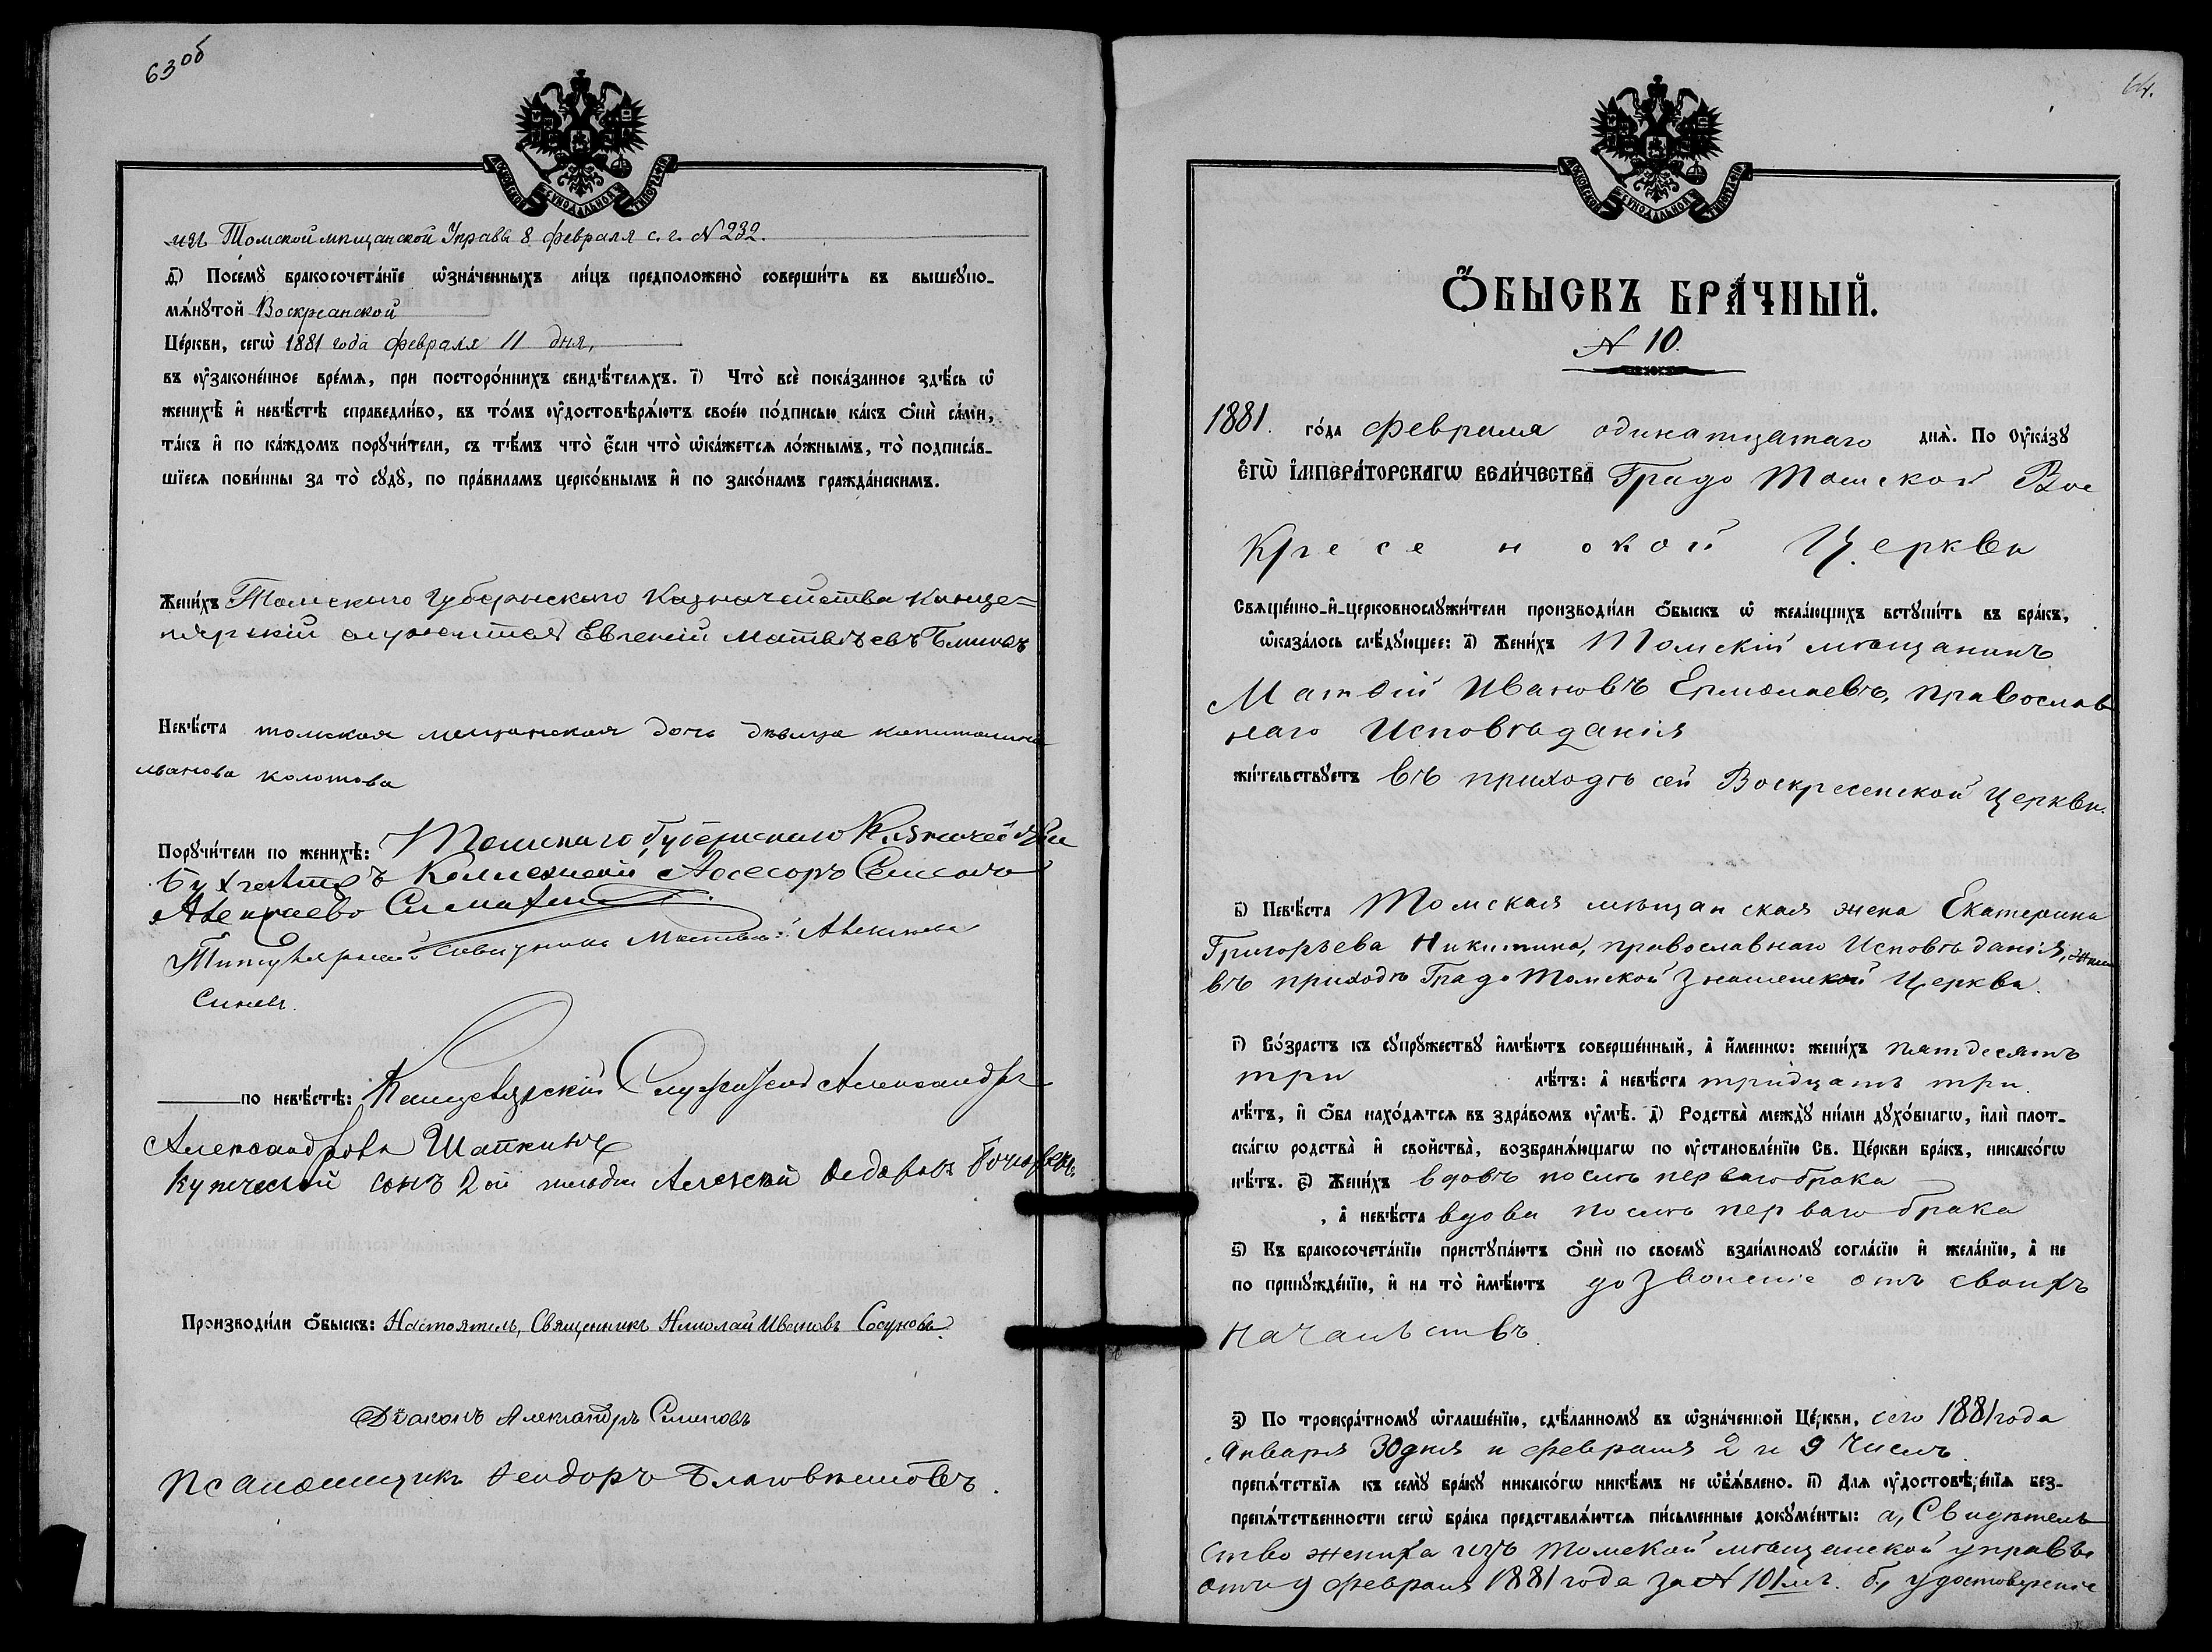 63об
МОСКОВСКОЙ СѴНОДАЛЬНОЙ ТИПОГРАФІИ
изъ Томской мѣщанской Управы 8 февраля с. г. № 232.
д҃) Посемꙋ̀ бракосочета́нїе ѡ҆зна́ченныхъ ли́цъ предположено̀ соверши́ть въ вышеꙋпо-
мѧ́нꙋтой Воскресенской
Це́ркви, сегѡ̀ 1881 года февраля 11 дня,
въ ᲂу҆законе́нное вре́мѧ, при посторо́ннихъ свидѣ́телѧхъ. і҃) Что̀ всѐ пока́занное здѣ́сь ѡ҆
женихѣ̀ и҆ невѣ́стѣ справедли́во, въ то́мъ ᲂу҆достовѣрѧ́ютъ свое́ю по́дписью ка́къ ѻ҆нѝ са́ми,
та́къ и҆ по ка́ждомъ порꙋчи́тели, съ тѣ́мъ что̀ є҆́сли что̀ ѡ҆ка́жетсѧ ло́жнымъ, то̀ подписа́в-
шїесѧ пови́нны за то̀ сꙋдꙋ̀, по пра́виламъ церко́внымъ и҆ по зако́намъ гражда́нскимъ.
Жени́хъ Томскаго Губернскаго Казначейства Канце=
лярскій служитель Евгеній Матвѣевъ
Невѣ́ста томская мещанская дочь дѣвица капитолина
иванова колотова
Порꙋчи́тели по женихѣ̀: Томскаго Губернскаго Казначейства
Бухгалтеръ Коллежскій Асессоръ Семенъ
Титулярный совѣтникъ Матвѣй
по невѣ́стѣ: Канцелярскій Служитель Александръ
Александровъ Шапкинъ
Купеческій сынъ 2ой гильдіи Алексѣй Федоровъ
Производи́ли ѻ҆́быскъ: Настоятель, Священникъ Николай Ивановъ Сосуновъ.
Діаконъ Александръ
Псаломщикъ Феодоръ.
64.
МОСКОВСКОЙ СѴНОДАЛЬНОЙ ТИПОГРАФІИ
Ѻ҆́БЫСКЪ БРА́ЧНЫЙ.
№ 10.
1881. го́да февраля одинатцатаго днѧ̀. По Оу҆ка́зꙋ
є҆гѡ̀ і҆мпера́торскагѡ вели́чества Градо Томской Вос
кресе н ской Церкви
Свѧще́нно-и҆-церковнослꙋжи́тели производи́ли ѻ҆́быскъ ѡ҆ жела́ющихъ встꙋпи́ть въ бра́къ,
ѡ҆каза́лось слѣ́дꙋющее: а҃) Жени́хъ Томскій мѣщанинъ
Матвій Ивановъ Ермолаевъ, православ
наго Исповѣданія
жи́тельствꙋетъ въ приходѣ сей Воскресенской Церкви.
в҃) Невѣ́ста Томская мѣщанская жена Екатерина
Григорьева Никитина, православнаго Исповѣданія,
въ приходѣ Градо Томской Знаменской Церкви.
г҃) Во́зрастъ къ сꙋпрꙋ́жествꙋ и҆мѣ́ютъ соверше́нный, а҆ и҆́меннѡ: жени́хъ пятдесятъ
три лѣ́тъ: а҆ невѣ́ста тридцать три
лѣ́тъ, и҆ ѻ҆́ба нахо́дѧтсѧ въ здра́вомъ ᲂу҆мѣ̀. д҃) Родства̀ междꙋ̀ ни́ми дꙋхо́внагѡ, и҆лѝ плот-
ска́гѡ родства̀ и҆ свойства̀, возбранѧ́ющагѡ по ᲂу҆становле́нїю Св. Це́ркви бра́къ, никако́гѡ
нѣ́тъ. є҃) Жени́хъ вдовъ послѣ перваго брака
, а҆ невѣ́ста вдова послѣ перваго брака
ѕ҃) Къ бракосочета́нїю пристꙋпа́ютъ ѻ҆нѝ по своемꙋ̀ взаи́мномꙋ согла́сїю и҆ жела́нїю, а҆ не
по принꙋжде́нїю, и҆ на то̀ и҆мѣ́ютъ дозволеніе отъ своихъ
началствъ.
з҃) По троекра́тномꙋ ѡ҆глаше́нїю, сдѣ́ланномꙋ въ ѡ҆зна́ченной Це́ркви, сего 1881 года
Января 30 дня и февраля 2 и 9 Числъ
препѧ́тствїѧ къ семꙋ̀ бра́кꙋ никако́гѡ никѣ́мъ не ѡ҆б̾ѧ́влено. и҃) Длѧ ᲂу҆достовѣре́нїѧ без-
препѧ́тственности сегѡ̀ бра́ка представлѧ́ютсѧ пи́сьменные докꙋме́нты: а, Свидѣтель
ство жениха изъ томской мѣщанской управы
отъ 9 февраля 1881 года за № 101 б, удостовереніе